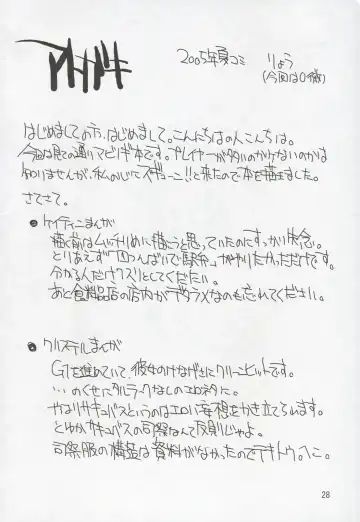 アトガキ
2005年夏コミ りょう
(今回は0稿)
はじめましての方、はじめまして。こんにちはの人こんちは。
今回は見ての通りマビノギ本です。プレイヤーが多いのか少ないのかは
知りませんが、私のじにズギューン!!と来たので本を描きました。
さてさて。
●ケイティンまんが
描く前はムッチリめに描こうと思っていたのにすっかり失念。
とりあえず「四つんばいで駅弁」がやりたかっただけです。
分かる人だけクスリとしてください。
あと食料品店の店内がデタラメなのも忘れてください。
●クリステルまんが
G1を進めていて、彼女のけなげさにクリーンヒットです。
…のくせにタルラークなしのエロネタに。
やはりサキュバスというのはエロい妄想をかき立てられます。
とゆーかサキュバスの司祭なんて反則じゃよ。
司祭服の構造は資料がなかったのでテキトウ。へこ。
28